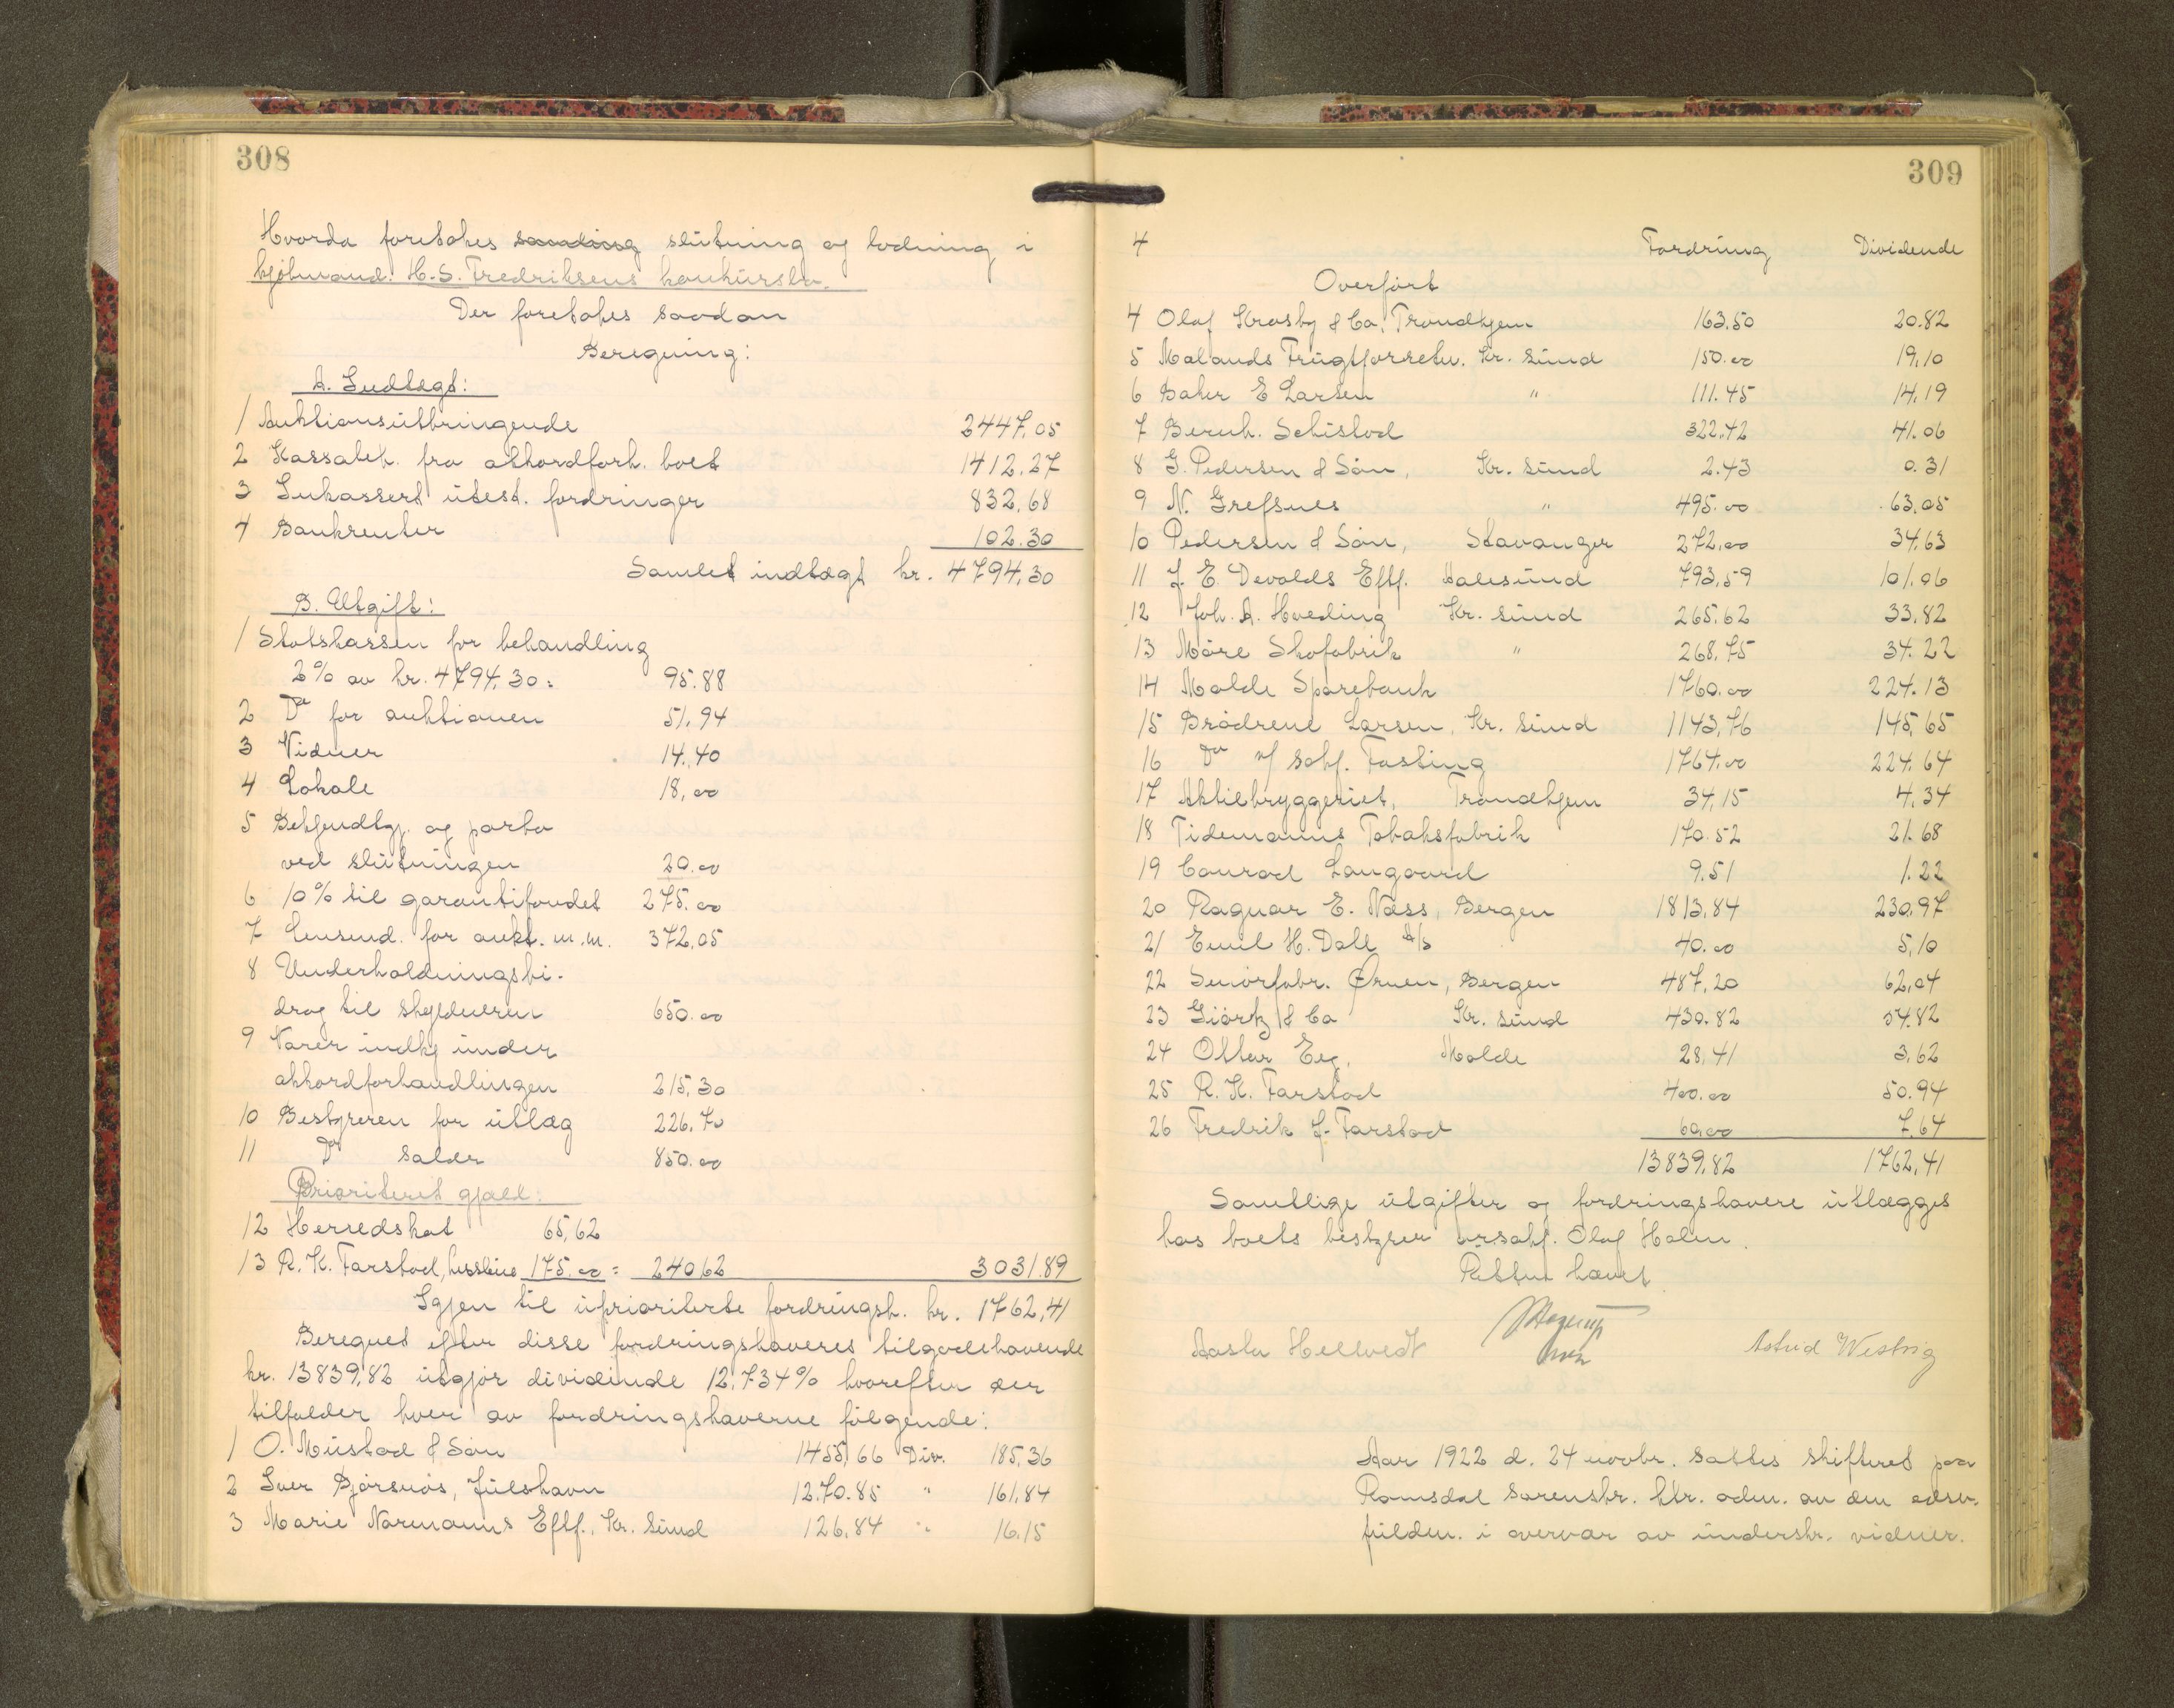 308
Hvorda foretokes samling slutning og lodning i
kjøbmand. H.S. Fredriksens konkursbo.
Der foretokes saadan
Beregning:
A. Indtægt:
1 Auktionsutbringende 2447,05
2 Kassabeh. fra akkordforh. boet 1412,27
3 Inkassert utest. fordringer 832,68
4 Bankrenter 102.30
Samlet indtægt kr. 4794,30
B. Utgift:
1 Statskassen for behandling
2% av kr. 4794,30: 95.88
2 Do for auktionen 51,94
3 Vidner 14,40
4 Lokale 18,00
5 Bekjendtgj. og porto
ved slutningen 20.00
6 10% til garantifondet 275.00
7 Lensmd. for aukt. m.m. 372,05
8 Underholdningsbi-
drag til skyldneren 650.00
9 Varer indkj under
akkordforhandlingen 215,30
10 Bestyreren for utlæg 226.70
11 Do salær 850.00
Prioritert gjæld:
12 Herredskat 65,62
13 R. K. Farstad, husleie 175.00 = 24062 3031.89
Igjen til uprioriterte fordringsh. kr. 1762,41
Beregnet efter disse fordringshaveres tilgodehavende
kr. 13839,82 utgjør dividende 12,734% hvorefter der
tilfalder hver av fordringshaverne følgende:
1 O. Mustad & Søn 1455,66 Div. 185,36
2 Iver Bjørsnøs, Julshavn 1270.85 " 161.84
3 Marie Normanns Eftf., Kr. Sund 126,84 " 16.15
309
4 Fordring Dividende
Overført
4 Olaf Krosby & Co, Trondhjem 163.50 20.82
5 Malands Frugtforretn. Kr. sund 150.00 19,10
6 Baker E Larsen " 111.45 14,19
7 Bernh. Schistad 322.42 41.06
8 G. Pedersen & Søn, Kr. sund 2.43 0.31
9 N. Grefsnes " 495.00 63,05
10 Pedersen & Søn, Stavanger 272,00 34,63
11 J. E. Devolds Eftf. Aalesund 793,59 101.06
12 Joh. A. Hveding Kr. sund 265.62 33.82
13 Møre Skofabrik " 268,75 34.22
14 Molde Sparebank 1760.00 224.13
15 Brødrene Larsen, Kr. sund 1143,76 145,65
16 Do v/ sakf. Fasting 1764.00 224.64
17 Aktiebryggeriet, Trondhjem 34,15 4,34
18 Tidemanns Tobaksfabrik 170.52 21.68
19 Conrad Langaard 9.51 1.22
20 Ragnar E. Næss, Bergen 1813,84 230,97
21 Emil H. Dall A/S 40.00 5,10
22 Smørfabr. Ørnen, Bergen 487,20 62,04
23 Giørtz & Co Kr. sund 430.82 54.82
24 Ottar Eeg, Molde 28,41 3,62
25 R. K. Farstad 400.00 50.94
26 Fredrik J. Farstad 60,00 7,64
13839,82 1762,41
Samtlige utgifter og fordringshavere utlægges
hos boets bestyrer o.r.sakf. Olaf Holen.
Retten hævet
Aasta Hellvedt Astrid Westvig
Aar 1922 d. 24 novbr. sattes skifteret paa
Romsdal sorenskr. ktr. adm. av den edsv.
fuldm. i overvær av underskr. vidner.